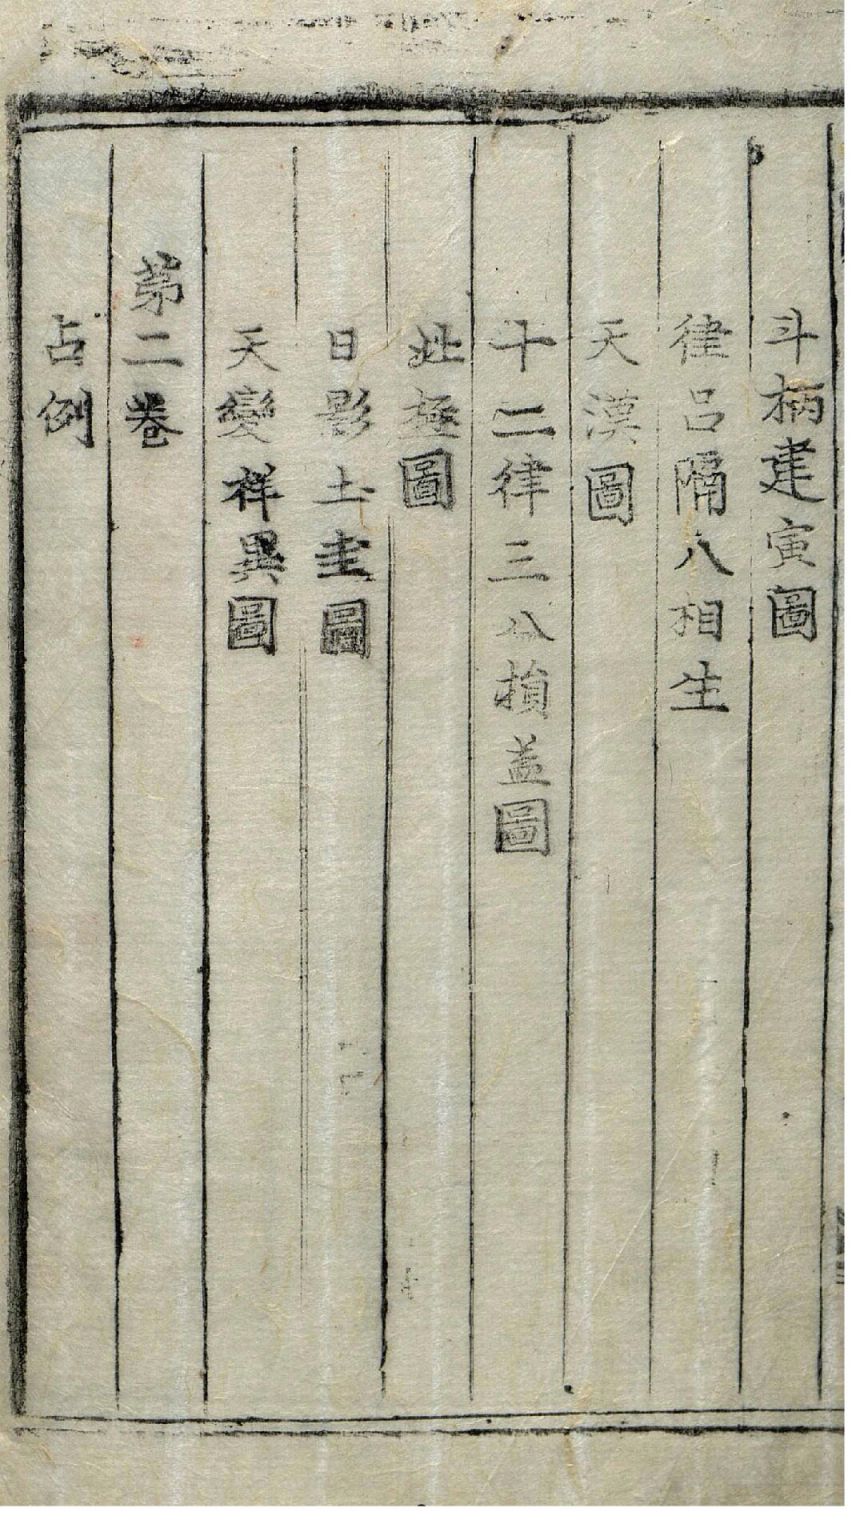 斗柄建寅圖
律呂隔八相生
天漢圖
十二律三分損益圖
北極圖
日影土圭圖
天變祥異圖
第二卷
占例